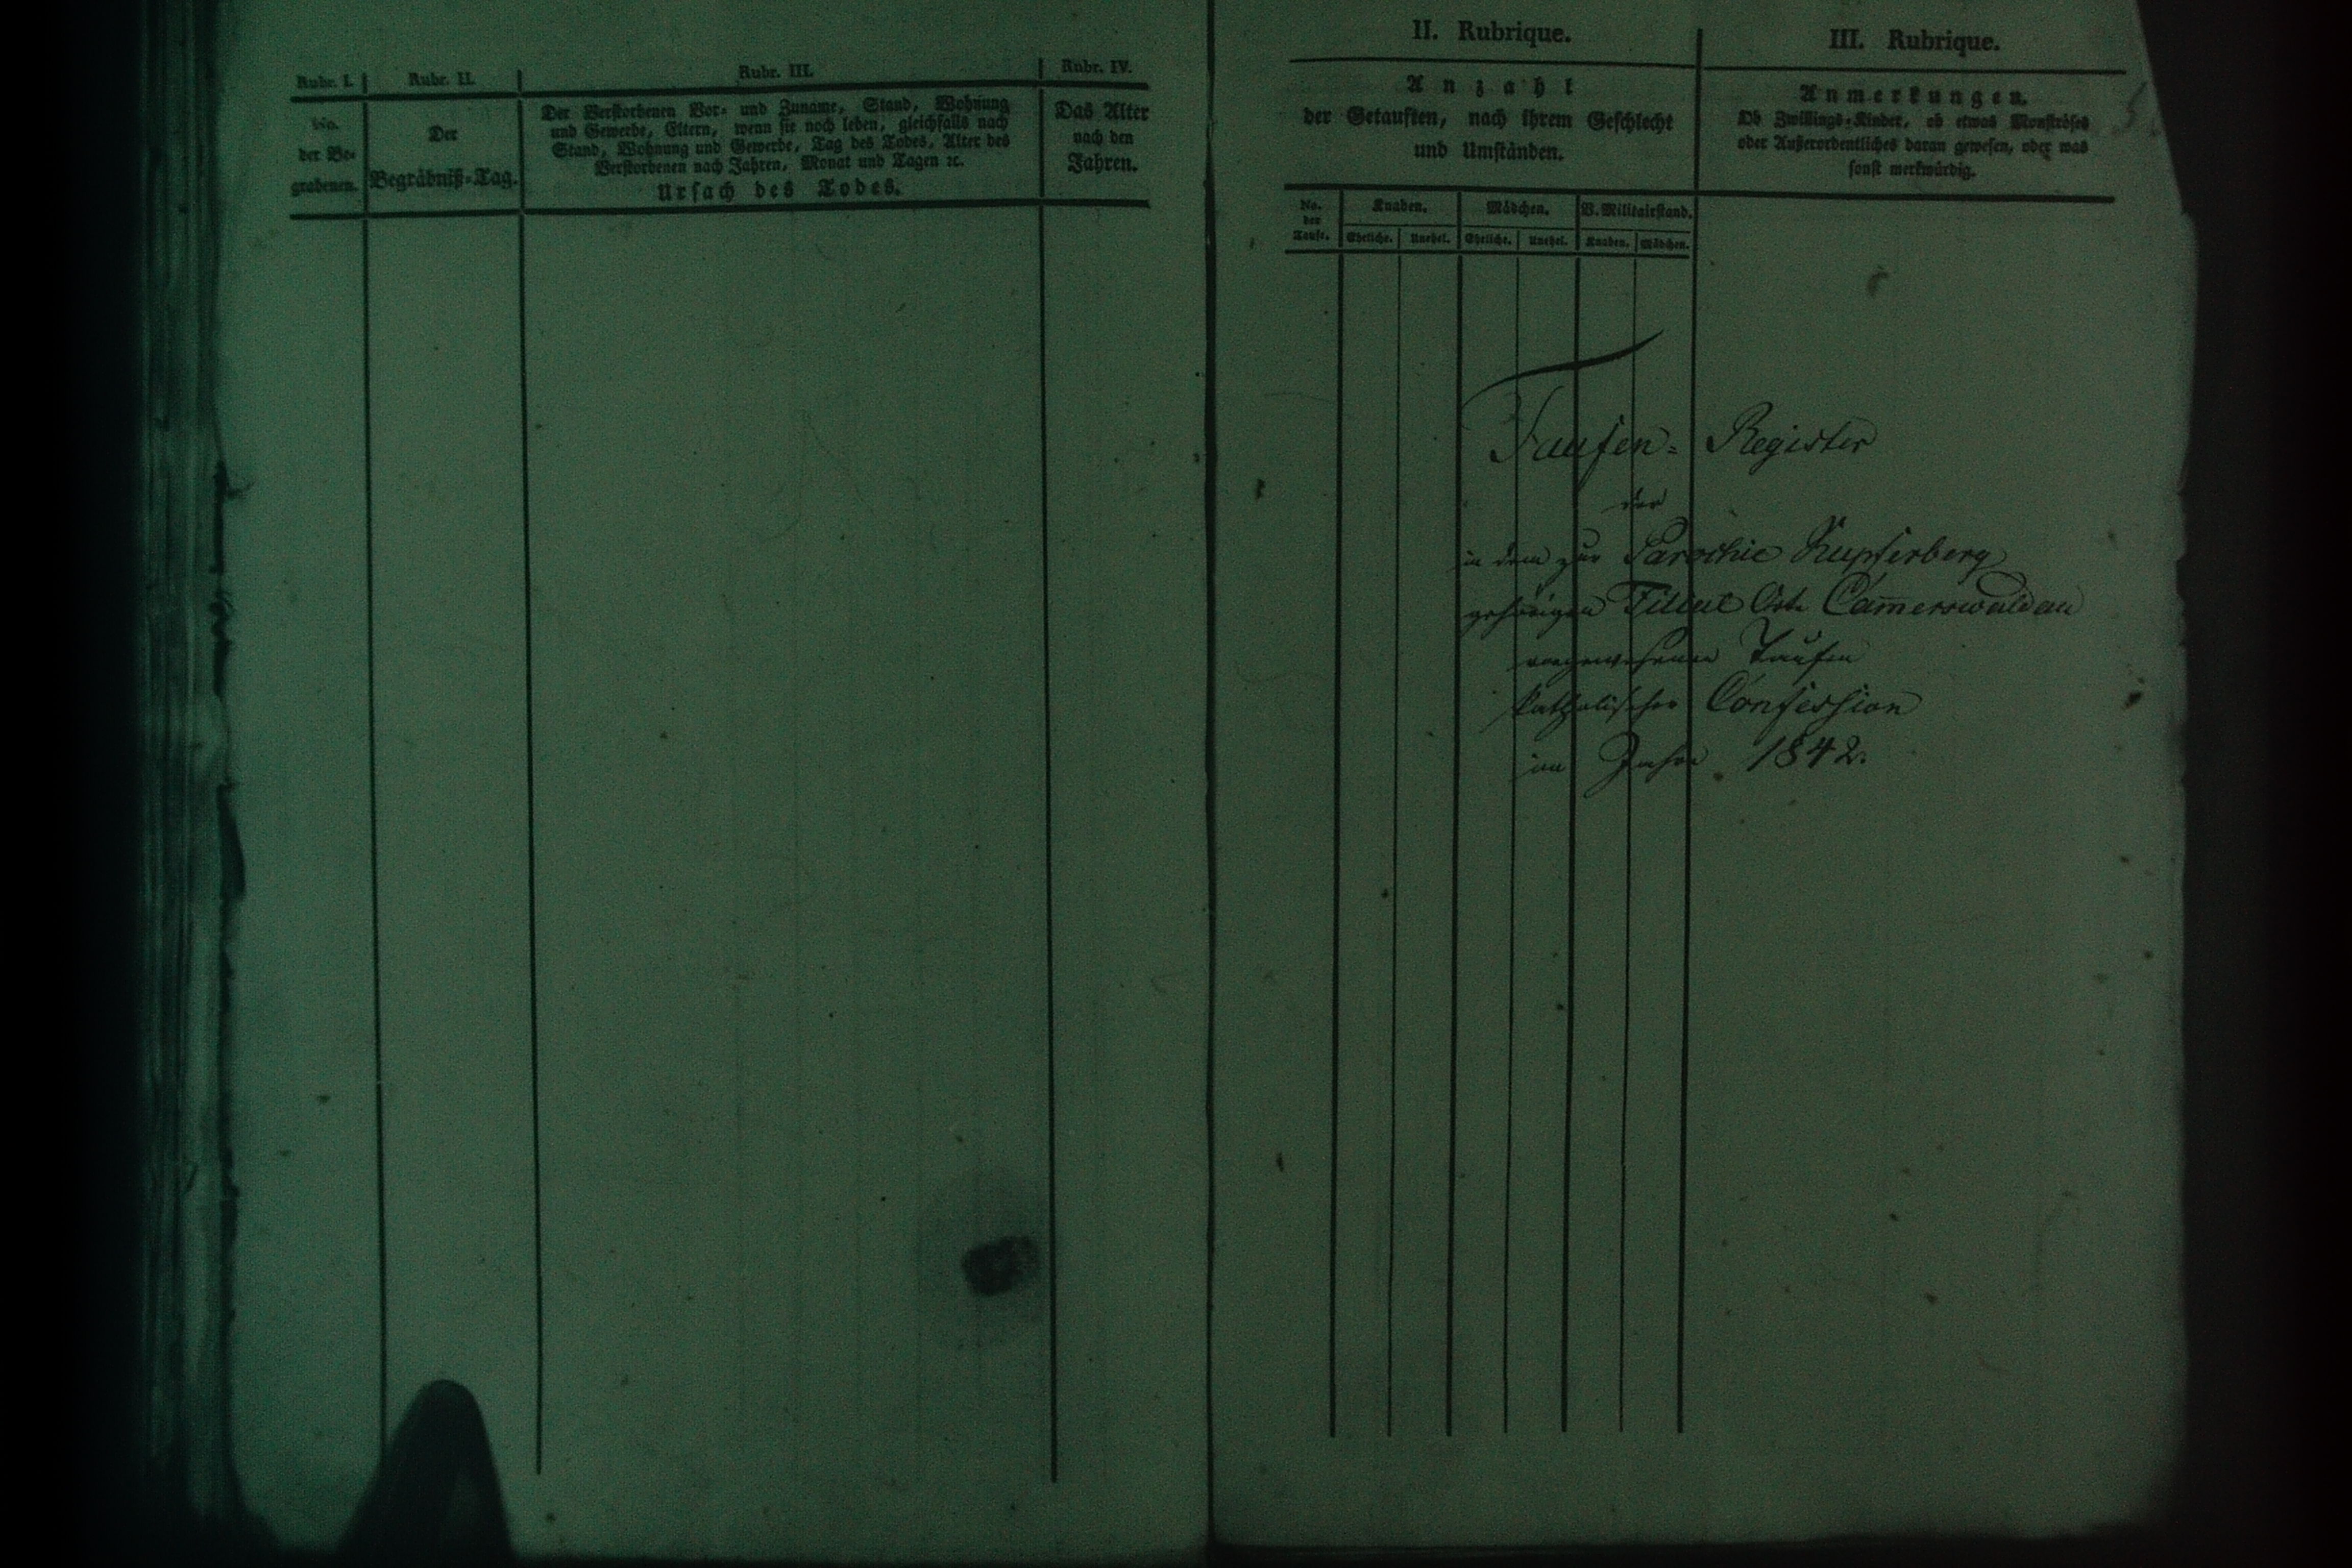 Rubr. I. Rubr. II. Rubr. III. Rubr. IV.
No.
der Be-
grabenen.
Der
Begräbniß-Tag.
Der Verstorbenen Vor- und Zuname, Stand, Wohnung
und Gewerbe, Eltern, wenn sie noch leben, gleichfalls nach
Stand, Wohnung und Gewerbe, Tag des Todes, Alter des
Verstorbenen nach Jahren, Monat und Tagen ꝛc.
Ursach des Todes.
Das Alter
nach den
Jahren.
II. Rubrique.
Anzahl
der Getauften, nach ihrem Geschlecht
und Umständen.
No.
der
Taufe.
Knaben. Mädchen. V. Militairstand.
Eheliche. Unehel. Eheliche. Unehel. Knaben. Mädchen.
III. Rubrique.
Anmerkungen.
Ob Zwillings-Kinder, ob etwas Monströses
oder Außerordentliches daran gewesen, oder was
sonst merkwürdig.
Taufen-Register
der
in dem zur Parochie Kupferberg
gehörigen Filial Orte Cam̅erswaldau
vorgewesenen Taufen
katholischer Confession
im Jahre 1842.